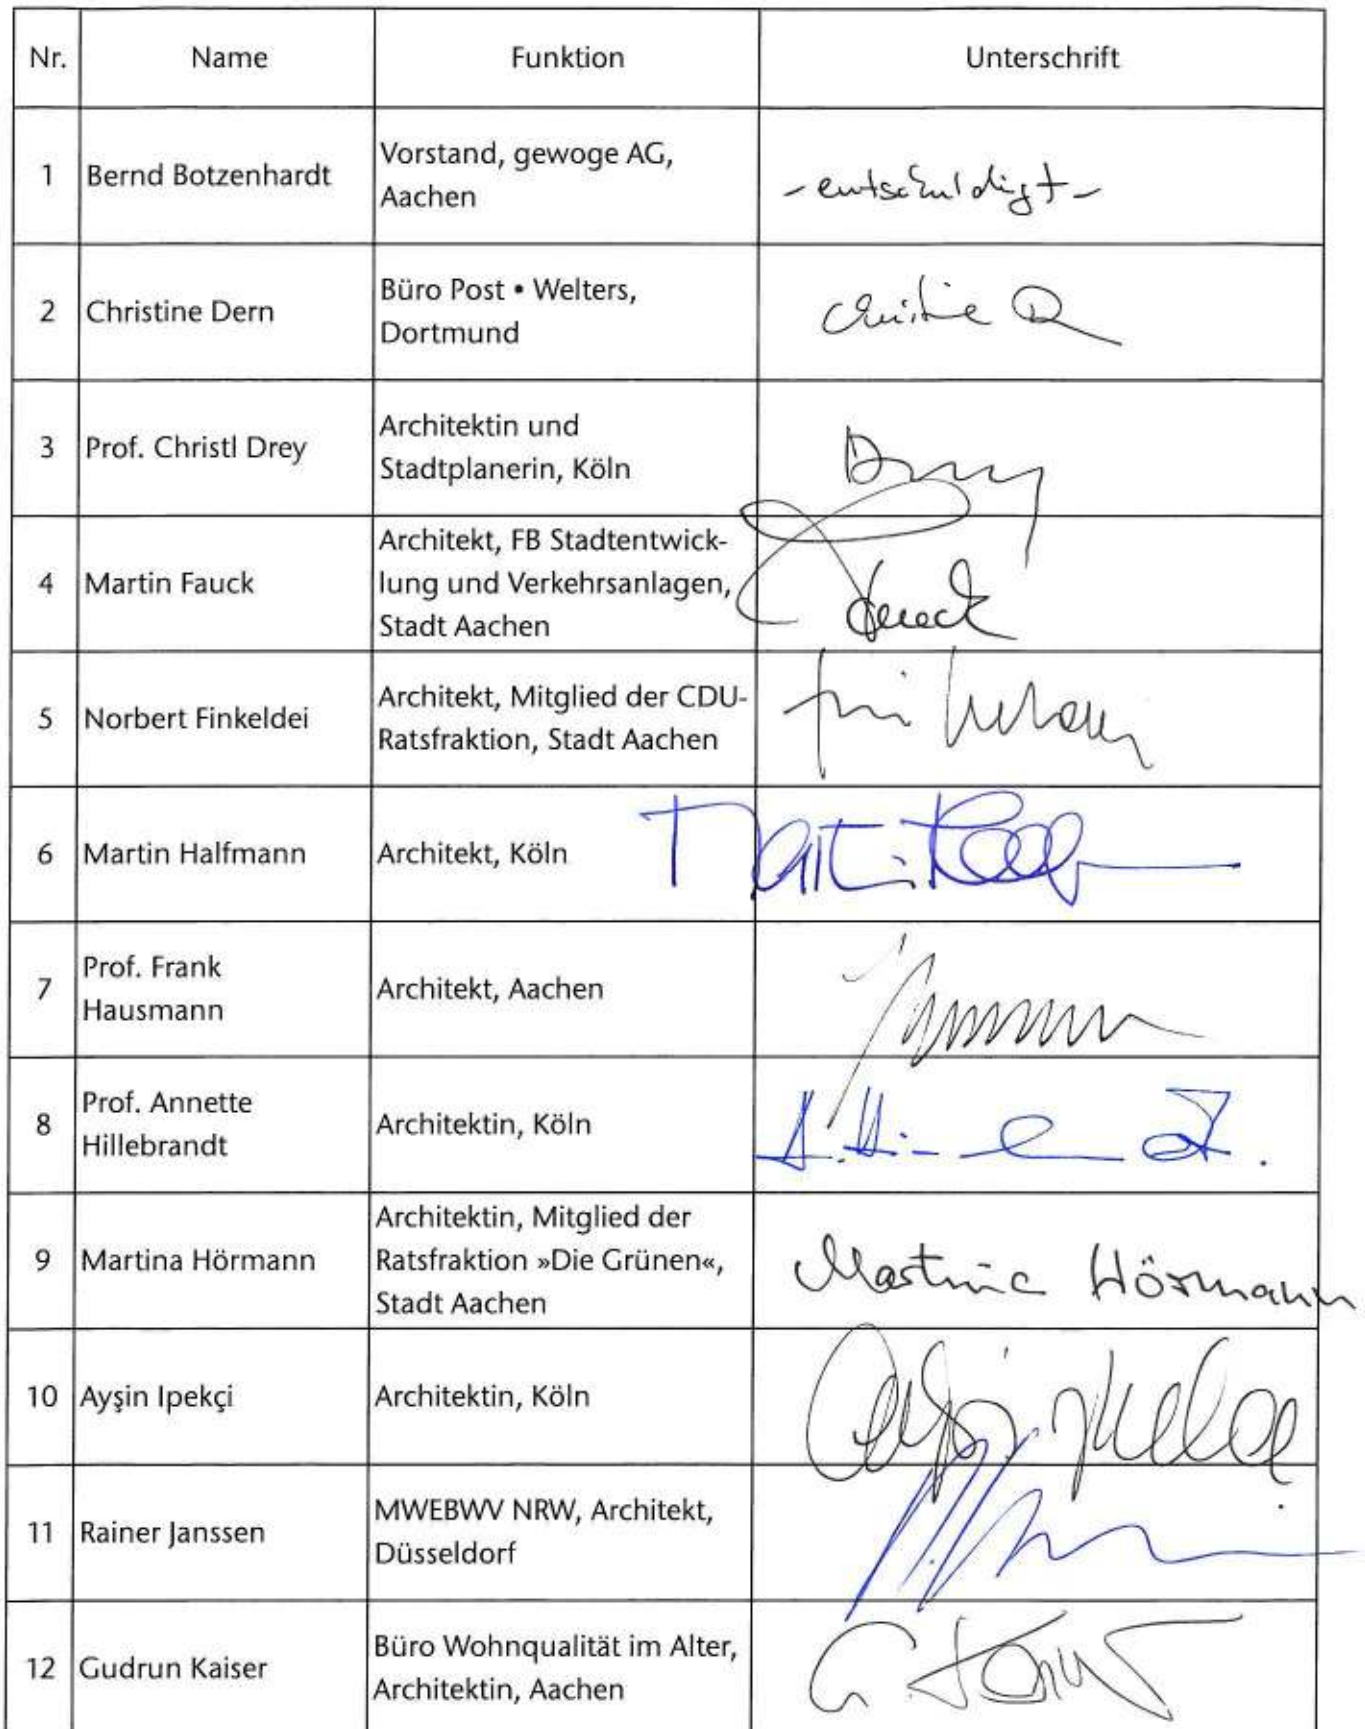 Nr. Name Funktion Unterschrift
1 Bernd Botzenhardt Vorstand, gewoge AG,
Aachen
-entschuldigt-
2 Christine Dern Büro Post • Welters,
Dortmund
Christine D
3 Prof. Christl Drey Architektin und
Stadtplanerin, Köln
Drey
4 Martin Fauck Architekt, FB Stadtentwick-
lung und Verkehrsanlagen,
Stadt Aachen
Fauck
5 Norbert Finkeldei Architekt, Mitglied der CDU-
Ratsfraktion, Stadt Aachen
6 Martin Halfmann Architekt, Köln
Martin
7 Prof. Frank
Hausmann
Architekt, Aachen
8 Prof. Annette
Hillebrandt
Architektin, Köln
9 Martina Hörmann Architektin, Mitglied der
Ratsfraktion »Die Grünen«,
Stadt Aachen
Martina Hörmann
10 Ayşin Ipekçi Architektin, Köln
11 Rainer Janssen MWEBWV NRW, Architekt,
Düsseldorf
12 Gudrun Kaiser Büro Wohnqualität im Alter,
Architektin, Aachen